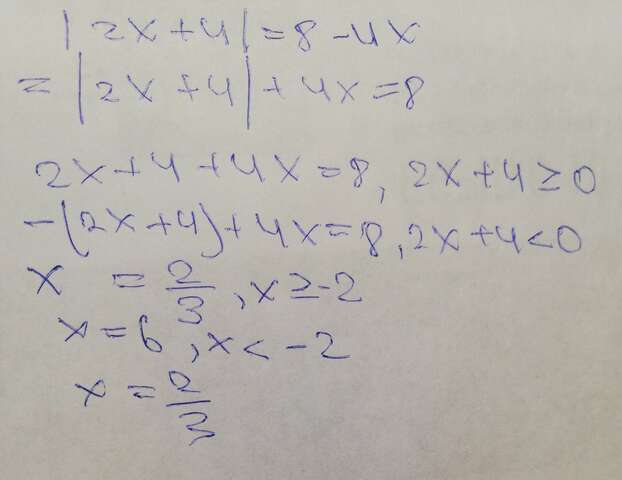 |2x+4|=8-4x
=|2x+4|+4x=8
2x+4+4x=8, 2x+4≥0
-(2x+4)+4x=8, 2x+4<0
x = 2/3, x≥-2
x=6, x<-2
x = 2/3